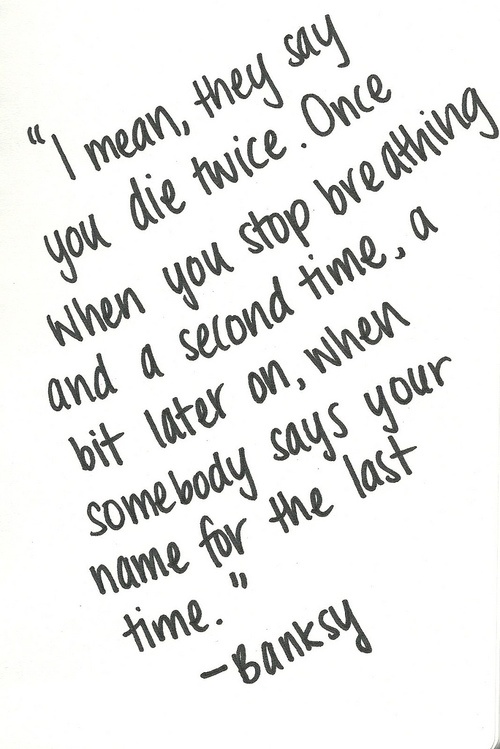 "I mean, they say
you die twice. Once
when you stop breathing
and a second time, a
bit later on, when
somebody says your
name for the last
time."
-Banksy